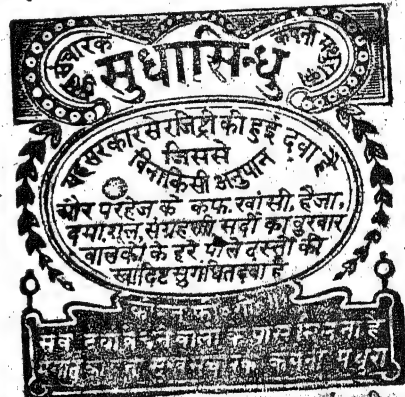 सुख संचारक कंपनी मथुरा का
सुधासिन्धु
यह सरकार से रजिस्ट्री की हुई दवा है
जिससे
बिना किसी अनुपान
और परहेज के कफ, खांसी, हैजा,
दमा, शूल, संग्रहणी सर्दी का बुखार
बालकों के हरे पीले दस्तों की
स्वादिष्ट सुगंधित दवा है
सब दवा बेचने वालों के पास मिलता है
सुख संचारक कंपनी मथुरा